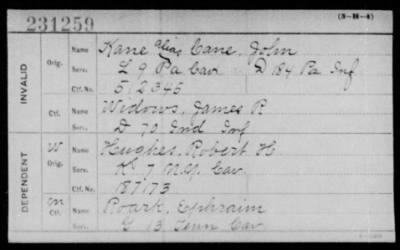 231259
(3-H-4)
INVALID
Orig. Name Kane alias Cane, John
Serv. L 9 Pa Cav D 184 Pa Inf
Ctf. No. 512345
Ctf. Name Widows, James R
Serv. D 70 Ind Inf
DEPENDENT
W Orig. Name Hughes, Robert H
Serv. K 7 N.Y. Cav.
Ctf. No. 187173
M Ctf. Name Roark, Ephraim
Serv. G 13 Tenn Cav